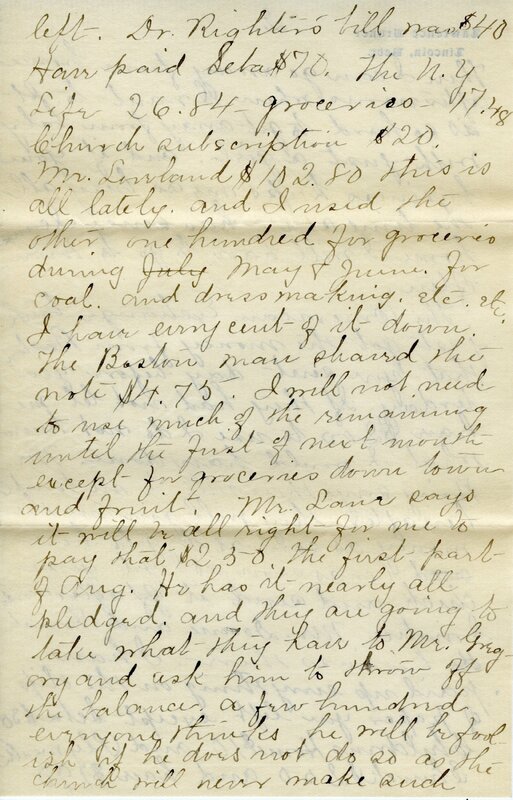 left. Dr. Righter's bill was $40
Have paid Seba $70. The N.Y
Life 26.84 - groceries - 17.48
Church subscription $20.
Mr. Loveland $102.80 this is
all lately. and I used the
other one hundred for groceries
during July May & June. for
coal. and dressmaking. etc. etc.
I have every cent of it down.
The Boston man shaved the
note $4.75. I will not need
to use much of the remaining
until the first of next month
except for groceries down town
and fruit. Mr. Lane says
it will be all right for me to
pay that $250. the first part
of Aug. He has it nearly all
pledged. and they are going to
take what they have to Mr. Greg-
ory and ask him to throw off
the balance a few hundred
everyone thinks he will be fool-
ish if he does not do so as the
church will never make such